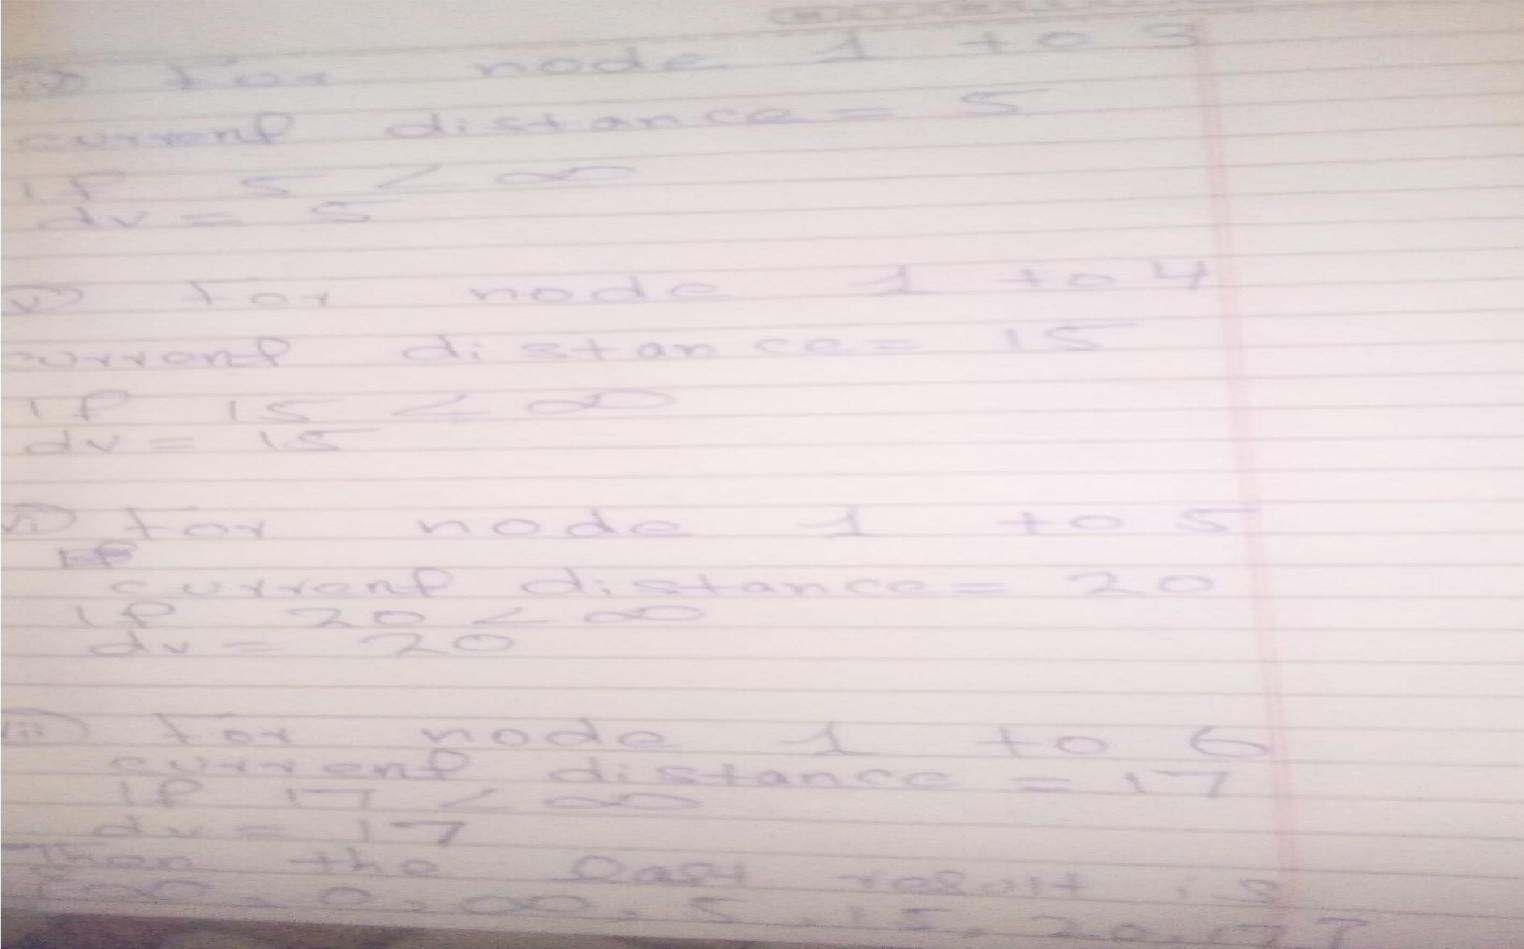 iv) for node 1 to 3
current distance = 5
if 5 < ∞
dv = 5
v) for node 1 to 4
current distance = 15
if 15 < ∞
dv = 15
vi) for node 1 to 5
current distance = 20
if 20 < ∞
dv = 20
vii) for node 1 to 6
current distance = 17
if 17 < ∞
dv = 17
Then the last result is
{∞, 0, ∞, 5, 15, 20, 17}